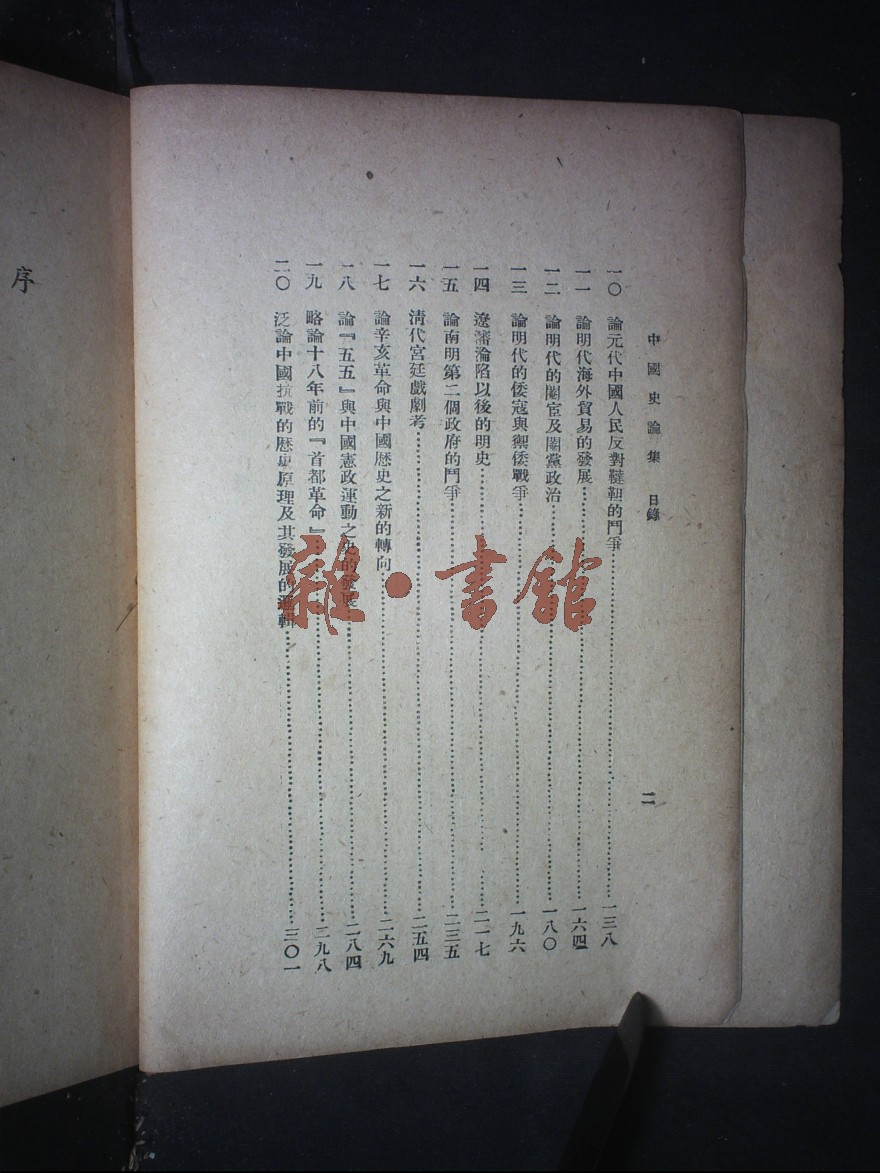 中國史論集 目錄 二
一〇 論元代中國人民反對韃靼的鬥爭……一三八
一一 論明代海外貿易的發展……一六四
一二 論明代的閹宦及閹黨政治……一八〇
一三 論明代的倭寇與禦倭戰爭……一九六
一四 遼瀋淪陷以後的明史……二一七
一五 論南明第二個政府的鬥爭……二三五
一六 清代宮廷戲劇考……二五四
一七 論辛亥革命與中國歷史之新的轉向……二六九
一八 論『五五』與中國憲政運動之史的發展……二八四
一九 略論十八年前的『首都革命』……二九八
二〇 泛論中國抗戰的歷史原理及其發展的邏輯……三〇一
序
雜·書館